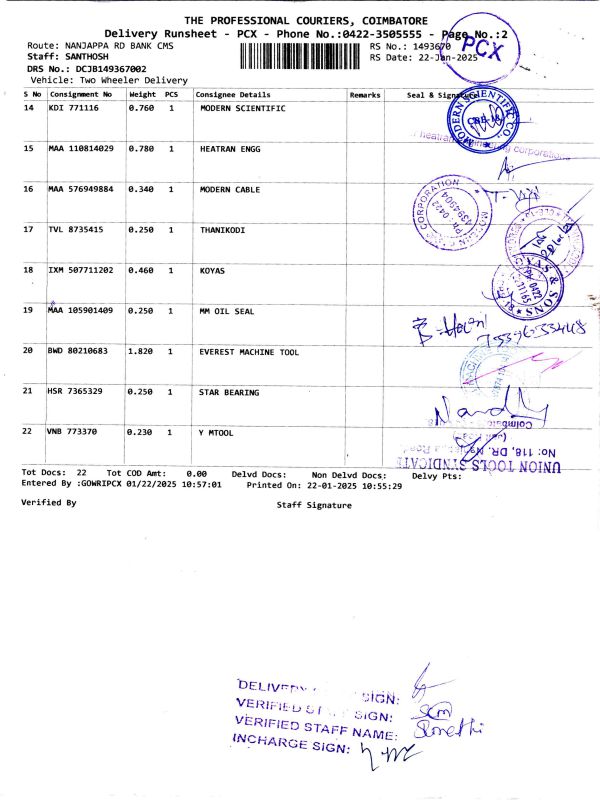 THE PROFESSIONAL COURIERS, COIMBATORE
Delivery Runsheet - PCX - Phone No.:0422-3505555 - Page No.:2
Route: NANJAPPA RD BANK CMS
RS No.: 1493670
Staff: SANTHOSH
RS Date: 22-Jan-2025
DRS No.: DCJB149367002
Vehicle: Two Wheeler Delivery
PCX
S No Consignment No Weight PCS Consignee Details Remarks Seal & Signature
14 KDI 771116 0.760 1 MODERN SCIENTIFIC
MODERN SCIENTIFIC CO.,
CBE-18
15 MAA 110814029 0.780 1 HEATRAN ENGG
16 MAA 576949884 0.340 1 MODERN CABLE
CORPORATION
PH: 0422
4394904
17 TVL 8735415 0.250 1 THANIKODI
18 IXM 507711202 0.460 1 KOYAS
& SONS
19 MAA 105901409 0.250 1 MM OIL SEAL
20 BWD 80210683 1.820 1 EVEREST MACHINE TOOL
21 HSR 7365329 0.250 1 STAR BEARING
22 VNB 773370 0.230 1 Y MTOOL
UNION TOOLS SYNDICATE
No: 118, DR.
Tot Docs: 22 Tot COD Amt: 0.00 Delvd Docs: Non Delvd Docs: Delvy Pts:
Entered By :GOWRIPCX 01/22/2025 10:57:01 Printed On: 22-01-2025 10:55:29
Verified By Staff Signature
DELIVERY SIGN:
VERIFIED SIGN:
VERIFIED STAFF NAME:
INCHARGE SIGN: